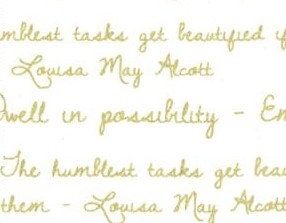 mblest tasks get beautified if
Louisa May Alcott
Dwell in possibility - Em
The humblest tasks get beau
them - Louisa May Alcott